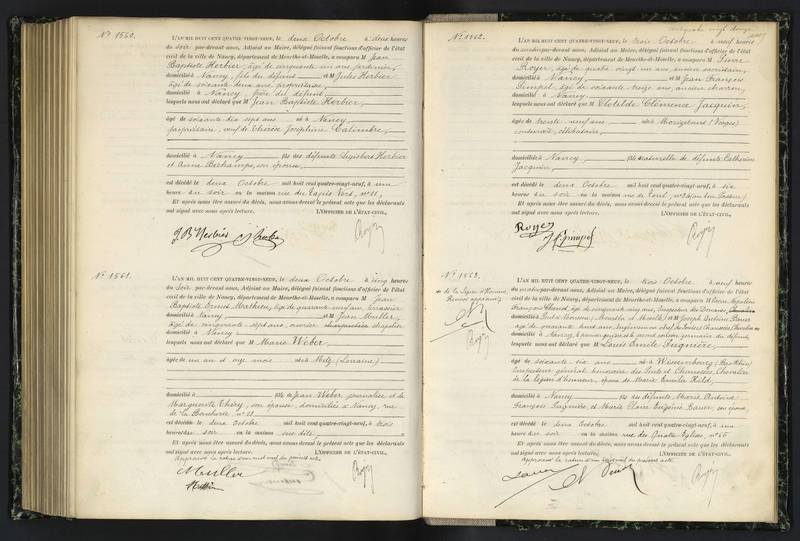 N° 1560.
L'AN MIL HUIT CENT QUATRE-VINGT-NEUF, le deux Octobre à deux heures
du soir par-devant nous, Adjoint au Maire, délégué faisant fonctions d'officier de l'état
civil de la ville de Nancy, département de Meurthe-et-Moselle, a comparu M Jean
Baptiste Herbier, âgé de cinquante un ans, jardinier,
domicilié à Nancy, fils du défunt et M Jules Herbier
âgé de soixante deux ans, propriétaire,
domicilié à Nancy, frère du défunt
lesquels nous ont déclaré que M Jean Baptiste Herbier,
âgé de soixante dix sept ans né à Nancy
propriétaire, veuf de Thérèse Joséphine
domicilié à Nancy fils des défunts Herbier
et Anne Bechamps, son épouse,
est décédé le deux Octobre mil huit cent quatre-vingt-neuf, à une
heure du soir en la maison rue du Tapis Vert, n° 11,
Et après nous être assuré du décès, nous avons dressé le présent acte que les déclarants
ont signé avec nous après lecture. L'OFFICIER DE L'ÉTAT-CIVIL,
J B Herbier J Herbier
N° 1561.
L'AN MIL HUIT CENT QUATRE-VINGT-NEUF, le deux Octobre à cinq heures
du soir par-devant nous, Adjoint au Maire, délégué faisant fonctions d'officier de l'état
civil de la ville de Nancy, département de Meurthe-et-Moselle, a comparu M Jean
Baptiste Ernest Mathieu, âgé de quarante neuf ans, brassier
domicilié à Nancy et M Jean Muller,
âgé de cinquante sept ans, ouvrier chapelier
domicilié à Nancy
lesquels nous ont déclaré que M Marie Weber,
âgée de un an et onze mois née à Metz (Lorraine)
domicilié à fille de Jean Weber journalier et de
Marguerite Thiéry, son épouse, domiciliés à Nancy, rue
de la Boucherie n° 11
est décédé le deux Octobre mil huit cent quatre-vingt-neuf, à trois
heures du soir en la maison sus dite,
Et après nous être assuré du décès, nous avons dressé le présent acte que les déclarants
ont signé avec nous après lecture. L'OFFICIER DE L'ÉTAT-CIVIL,
Approuvé la rature d'un mot nul du présent acte
Muller
N° 1562.
L'AN MIL HUIT CENT QUATRE-VINGT-NEUF, le trois Octobre à neuf heures
du matin par-devant nous, Adjoint au Maire, délégué faisant fonctions d'officier de l'état
civil de la ville de Nancy, département de Meurthe-et-Moselle, a comparu M Pierre
Royer, âgé de quatre vingt un ans, ancien sacristain,
domicilié à Nancy et M Jean François
âgé de soixante treize ans, ancien charron,
domicilié à Nancy
lesquels nous ont déclaré que M Clotilde Clémence Jacquin,
âgée de trente neuf ans née à (Vosges)
couturière, célibataire,
domicilié à Nancy, fille naturelle de défunte Catherine
Jacquin,
est décédé le deux Octobre mil huit cent quatre-vingt-neuf, à six
heures du soir en la maison rue de Toul,
Et après nous être assuré du décès, nous avons dressé le présent acte que les déclarants
ont signé avec nous après lecture. L'OFFICIER DE L'ÉTAT-CIVIL,
Royer
N° 1563.
de la Légion d'Honneur
Renvoi approuvé
L'AN MIL HUIT CENT QUATRE-VINGT-NEUF, le trois Octobre à neuf heures
du matin par-devant nous, Adjoint au Maire, délégué faisant fonctions d'officier de l'état
civil de la ville de Nancy, département de Meurthe-et-Moselle, a comparu M Napoléon
François âgé de cinquante cinq ans, Inspecteur des Domaines,
domicilié à (Meurthe & Moselle) et M Joseph
âgé de quarante huit ans, Ingénieur en chef des Ponts et Chaussées, Chevalier
domicilié à Nancy, germain du défunt,
lesquels nous ont déclaré que M Louis Emile Fuguière,
âgé de soixante six ans né à Wissembourg (Bas Rhin)
Inspecteur général honoraire des Ponts et Chaussées, Chevalier
de la légion d'honneur, époux de Marie Emilie Held,
domicilié à Nancy fils des défunts Marie Antoine
François Fuguière et Marie Claire Eugénie son épouse,
est décédé le deux Octobre mil huit cent quatre-vingt-neuf, à une
heure du soir en la maison rue des Quatre Eglises, n° 65
Et après nous être assuré du décès, nous avons dressé le présent acte que les déclarants
ont signé avec nous après lecture. L'OFFICIER DE L'ÉTAT-CIVIL,
Approuvé la rature d'un mot nul du présent acte